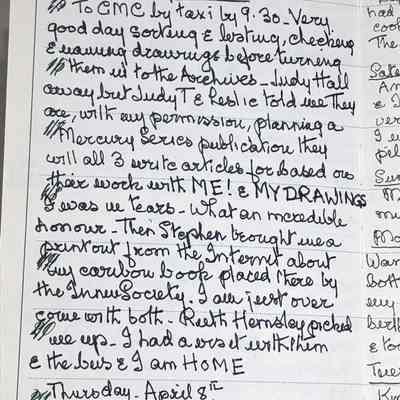 To CMC by taxi by 9.30 - Very
good day sorting & listing, checking
& naming drawings before turning
them in to the Archives - Judy Hall
away but Judy T & Leslie told me They
are, with my permission, planning a
Mercury Series publication they
will all 3 write articles for based on
their work with ME! & MY DRAWINGS
I was in tears - What an incredible
honour - Then Stephen brought me a
print out from the Internet about
my caribou book placed there by
the Innu Society. I am just over
come with both - Ruth Hemsley picked
me up - I had a visit with them
& the bus & I am HOME
Thursday - April 8th
had
cook
The
Sate
Am
ver
I
Sun
M
mu
Mo
War
bott
berth
& to
Tues